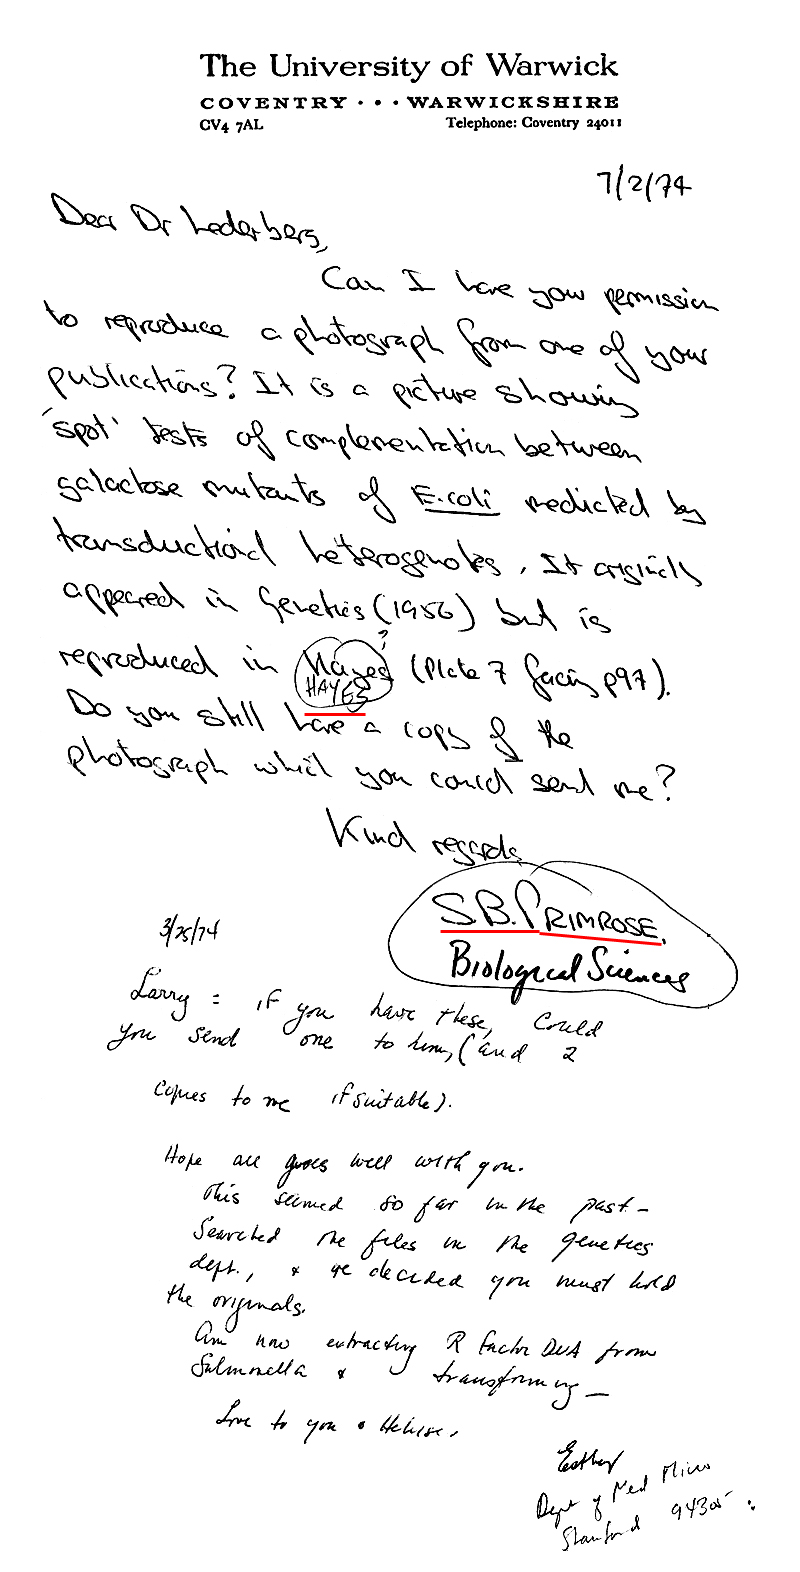 The University of Warwick
COVENTRY · · · WARWICKSHIRE
CV4 7AL Telephone: Coventry 24011
7/2/74
Dear Dr Lederberg,
Can I have your permission
to reproduce a photograph from one of your
publications? It is a picture showing
'spot' tests of complementation between
galactose mutants of E.coli mediated by
transductional heterogenotes. It originally
appeared in Genetics (1956) but is
?
reproduced in Hayes (Plate 7 facing p97).
HAYES
Do you still have a copy of the
photograph which you could send me?
Kind regards
S.B. PRIMROSE,
Biological Sciences
3/25/74
Larry = if you have these, could
you send one to him, (and 2
copies to me if suitable).
Hope all goes well with you.
This seemed so far in the past –
Searched the files in the genetics
dept., & we decided you must hold
the originals.
Am now extracting R factor DNA from
Salmonella & transforming –
Love to you & Helene.
Esther
Dept of Med Micro
Stanford 94305